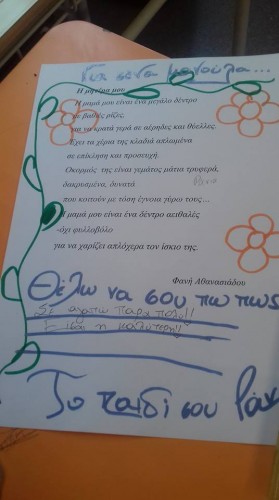 Για σένα μανούλα...
Η μητέρα μου
Η μαμά μου είναι ένα μεγάλο δέντρο
με βαθιές ρίζες.
για να κρατά γερά σε αέρηδες και θύελλες.
Έχει τα χέρια της κλαδιά απλωμένα
σε επίκληση και προσευχή.
Οκορμός της είναι γεμάτος μάτια τρυφερά,
δακρυσμένα, δυνατά
που κοιτούν με τόση έγνοια γύρω τους...
Η μαμά μου είναι ένα δέντρο αειθαλές
-όχι φυλλοβόλο
για να χαρίζει απλόχερα τον ίσκιο της.
Φανή Αθανασιάδου
Θέλω να σου πω πως
Σε αγαπώ πάρα πολύ!!
Είσαι η καλύτερη!!
Το παιδί σου